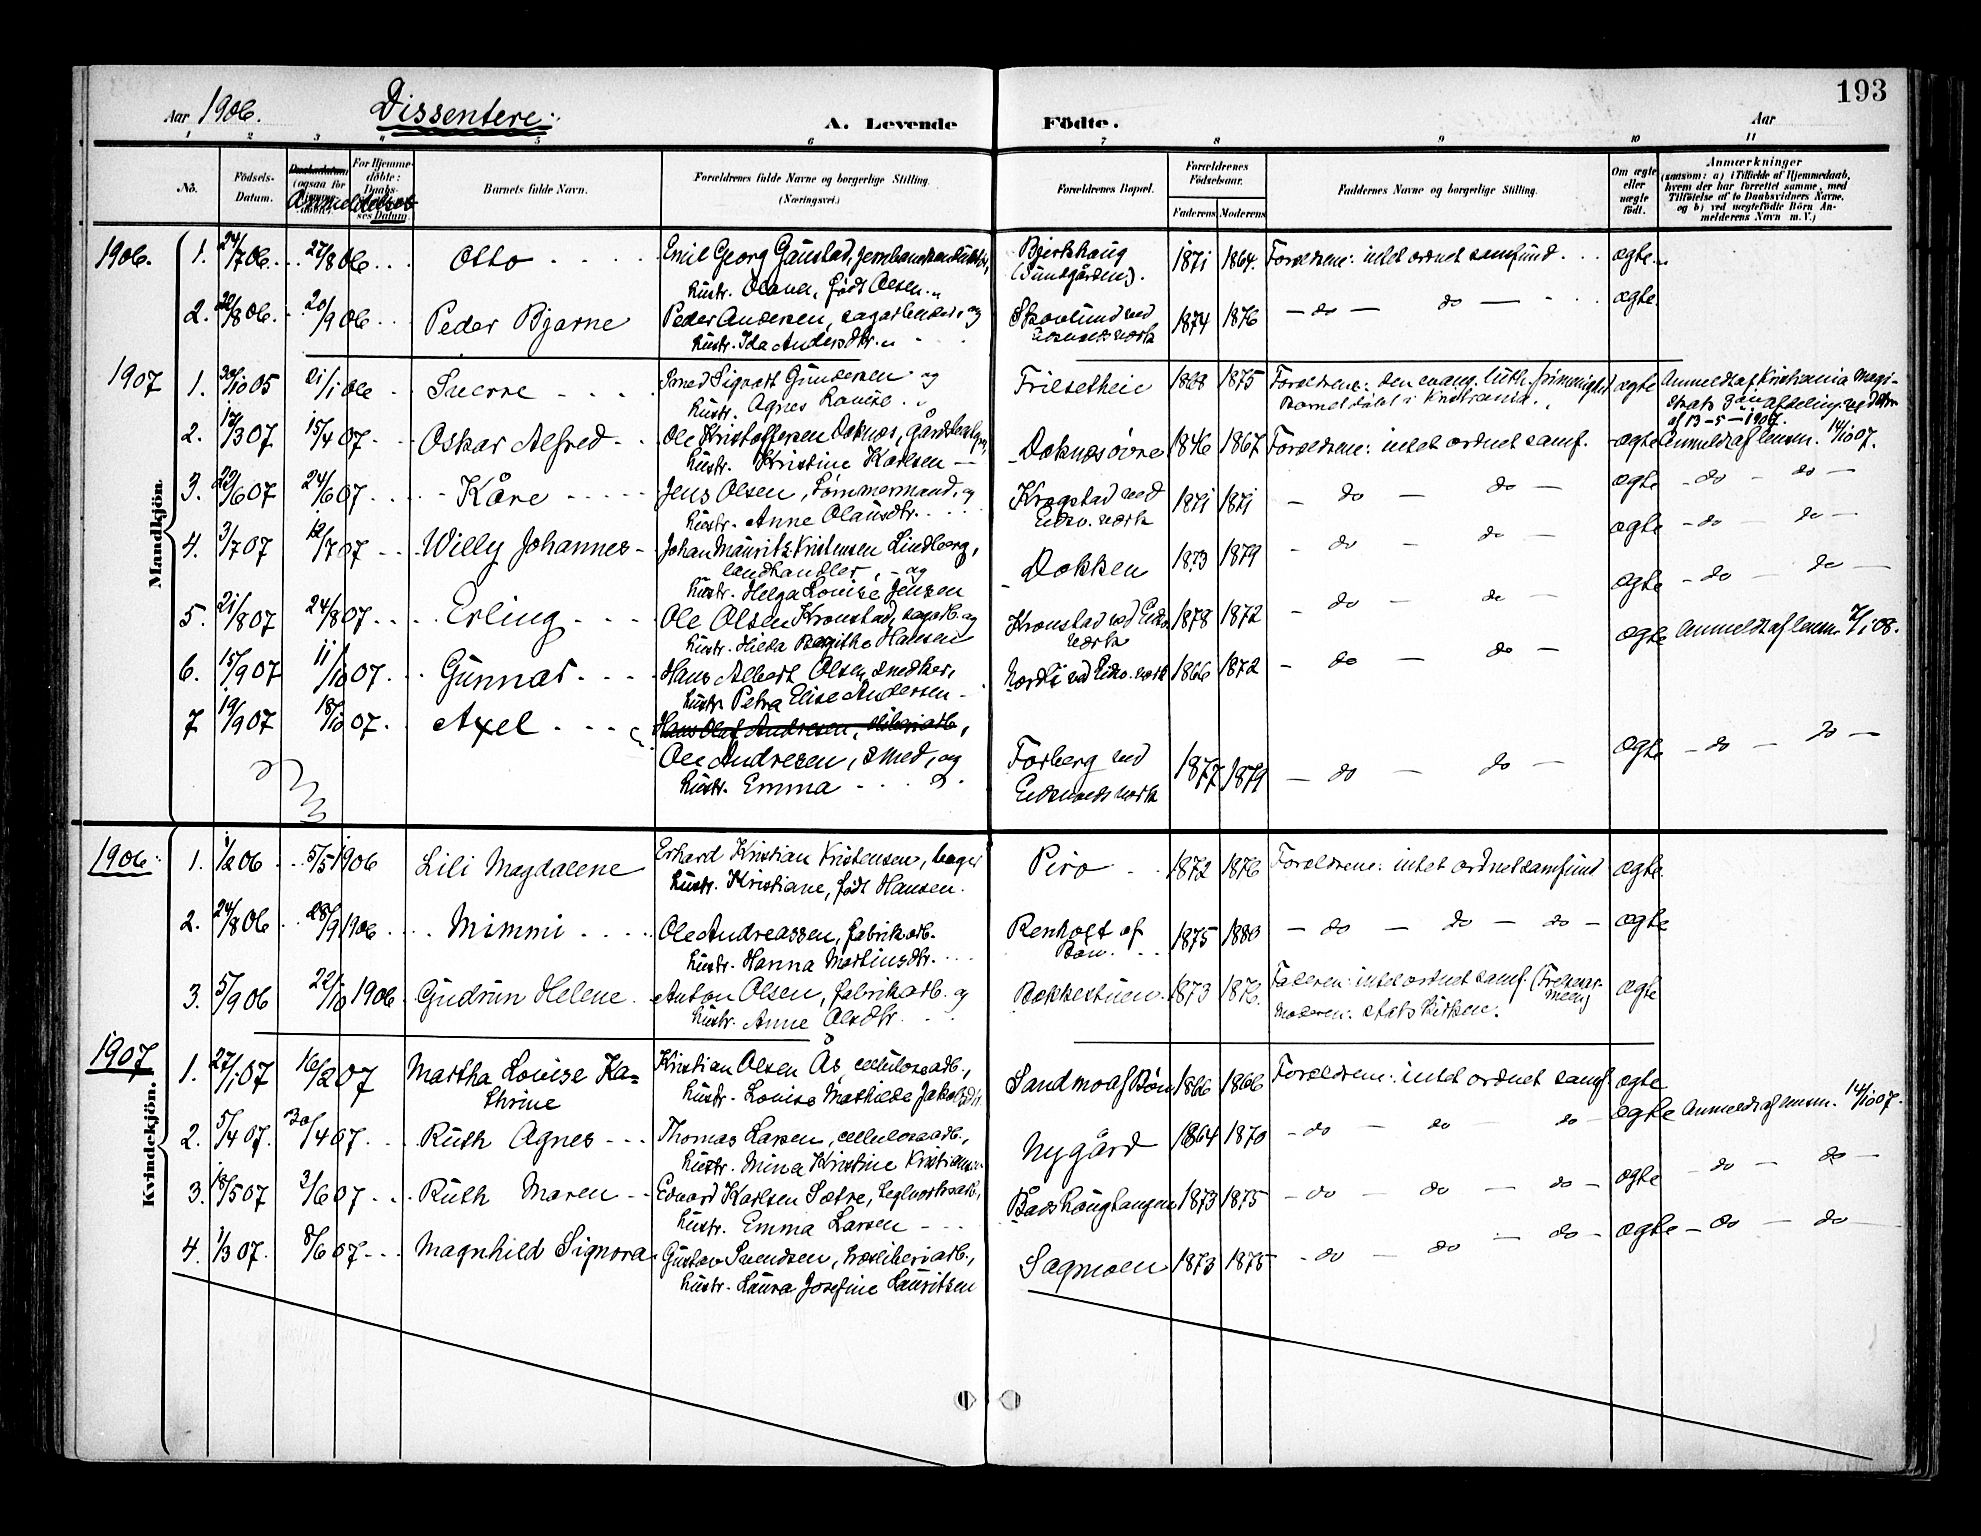 193
Aar 1906. Dissentere. A. Levende Födte. Aar
1 2 3 4 5 6 7 8 9 10 11
No. Födsels-Datum. (ogsaa for Anmeldelses For Hjemmedöbte: Daabs- Datum. Barnets fulde Navn. Forældrenes fulde Navne og borgerlige Stilling. (Næringsvei.) Forældrenes Bopæl. Forældrenes Födselsaar. Faderens Moderens Faddernes Navne og borgerlige Stilling. Om ægte eller uægte födt. Anmærkninger (saasom: a) i Tilfælde af Hjemmedaab, hvem der har forrettet samme, med Tilföielse af to Daabsvidners Navne, og b) ved uægtefödte Börn Anmelderens Navn m. V.)
Mandkjön.
1906. 1. 24/7 06. 27/8 06 Otto Emil Georg Gaustad,
hustr. født Olsen Bjerkhaug (Sundgården). 1871 1864. Forældrene: intet ordnet samfund. ægte
2. 22/8 06. 20/9 06 Peder Bjarne Peder Andersen, sagarbeider, og
hustr. Ida Andersdtr. Skovlund ved Eidsvolds værk 1874 1876 - do - do - ægte
1907 1. 30/10 05 21/1 06 Sverre Smed Sigvart Gundersen og
hustr. Agnes Lovise Trilsetheie 1868 1875 Forældrene: den evang. luth. frimenighed
Barnet døbt i Kristiania. ægte Anmeldt af Kristiania Magistrats
af 13-5-1907.
2. 12/3 07 15/4 07 Oskar Alfred Ole Kristoffersen Doknæs,
hustr. Kristine Karlsen Doknæs øvre 1846 1867 Forældrene: intet ordnet samf. ægte Anmeldt af lensm. 14/10 07.
3. 22/6 07 24/6 07 Kåre Jens Olsen, tømmermand, og
hustr. Anne Olausdtr. Krogstad ved Eidsv. værk 1871 1871 - do - do - ægte - do - do -
4. 3/7 07 12/7 07 Willy Johannes Johan Mauritz Kristensen Lindberg,
landhandler, og
hustr. Helga Lovise Jensen Dokken 1873 1879 - do - do - ægte - do - do -
5. 21/8 07 24/8 07 Erling Ole Olsen Kronstad, sagarb. og
hustr. Hilda Bergithe Hansen Kronstad ved Eidsv. værk 1878 1872 - do - do - ægte - do - do -
6. 15/9 07 11/10 07 Gunnar Hans Albert Olsen, snedker,
hustr. Petra Elise Andersen Nordli ved Eidsv. værk 1866 1872 - do - do - ægte Anmeldt af lensm. 7/1 08.
7 19/9 07 18/10 07 Axel Hans Olaf Andresen,
Ole Andresen, smed, og
hustr. Emma Forberg ved Eidsvolds værk 1877 1879 - do - do - ægte - do - do -
Kvindekjön.
1906. 1. 1/2 06 5/5 1906 Lili Magdalene Erhard Kristian Kristensen, bager
hustr. Kristiane, født Hansen. Piro 1872 1876 Forældrene: intet ordnet samfund ægte
2. 24/8 06 28/9 1906 Mimmi Ole Andreassen, fabrikarb.
hustr. Hanna Martinsdtr. Renholt af Bøn. 1875 1880 - do - do - do - ægte
3. 5/9 06 22/10 1906 Gudrun Helene Anton Olsen, fabrikarb. og
hustr. Anne Olsdtr. Bekkestuen 1873 1876. Faderen: intet ordnet samf.
Moderen: statskirken. ægte
1907 1. 27/1 07 16/2 07 Martha Lovise Kathrine Kristian Olsen Ås, cellulosearb.,
hustr. Lovise Mathilde Jakobsdtr Sandmo af Bøn 1866 1866 Forældrene: intet ordnet samf ægte
2. 5/4 07. 30/4 07 Ruth Agnes Thomas Larsen, cellulosearb.,
hustr. Mina Kristine Kristiansen Nygård 1864 1870 - do - do - do - ægte Anmeldt af lensm. 14/10 07.
3. 18/5 07 2/6 07 Ruth Maren Edvard Karlsen Sætre, teglverksarb.,
hustr. Emma Larsen Badshaugtangen 1873 1875 - do - do - do - ægte - do - do -
4. 1/3 07. 8/6 07 Magnhild Signora Gustav Svendsen, træsliberiarb.,
hustr. Laura Josefine Lauritsen Sagmoen 1873 1875 - do - do - do - ægte - do - do -